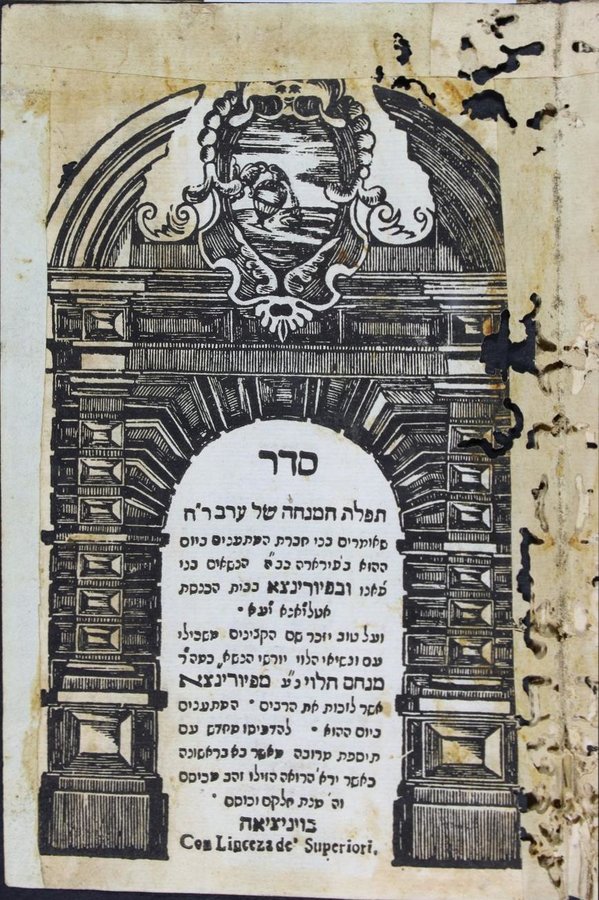 סדר
תפלת המנחה של ערב ר״ח
שאומרים בני חברת המתענים ביום
ההוא בפירארה בב״ה הנשאים בני
מאנו ובפיורינצא בבית הכנסת
איטליאנא יע״א ·
ועל טוב יזכר שם הקצינים משכילי
עם ונשיאי הלוי יורשי הנשא כמה״ר
מנחם הלוי נ״ע מפיורינצא
אשר לזכות את הרבים · המתענים
ביום ההוא · להדפיסו מחדש עם
תוספת מרובה מאשר בא בראשונה
כאשר יראה הרואה הזילו זהב מכיסם
וה׳ מנת חלקם וכוסם ·
בויניציאה
Con Linceza de' Superiori.